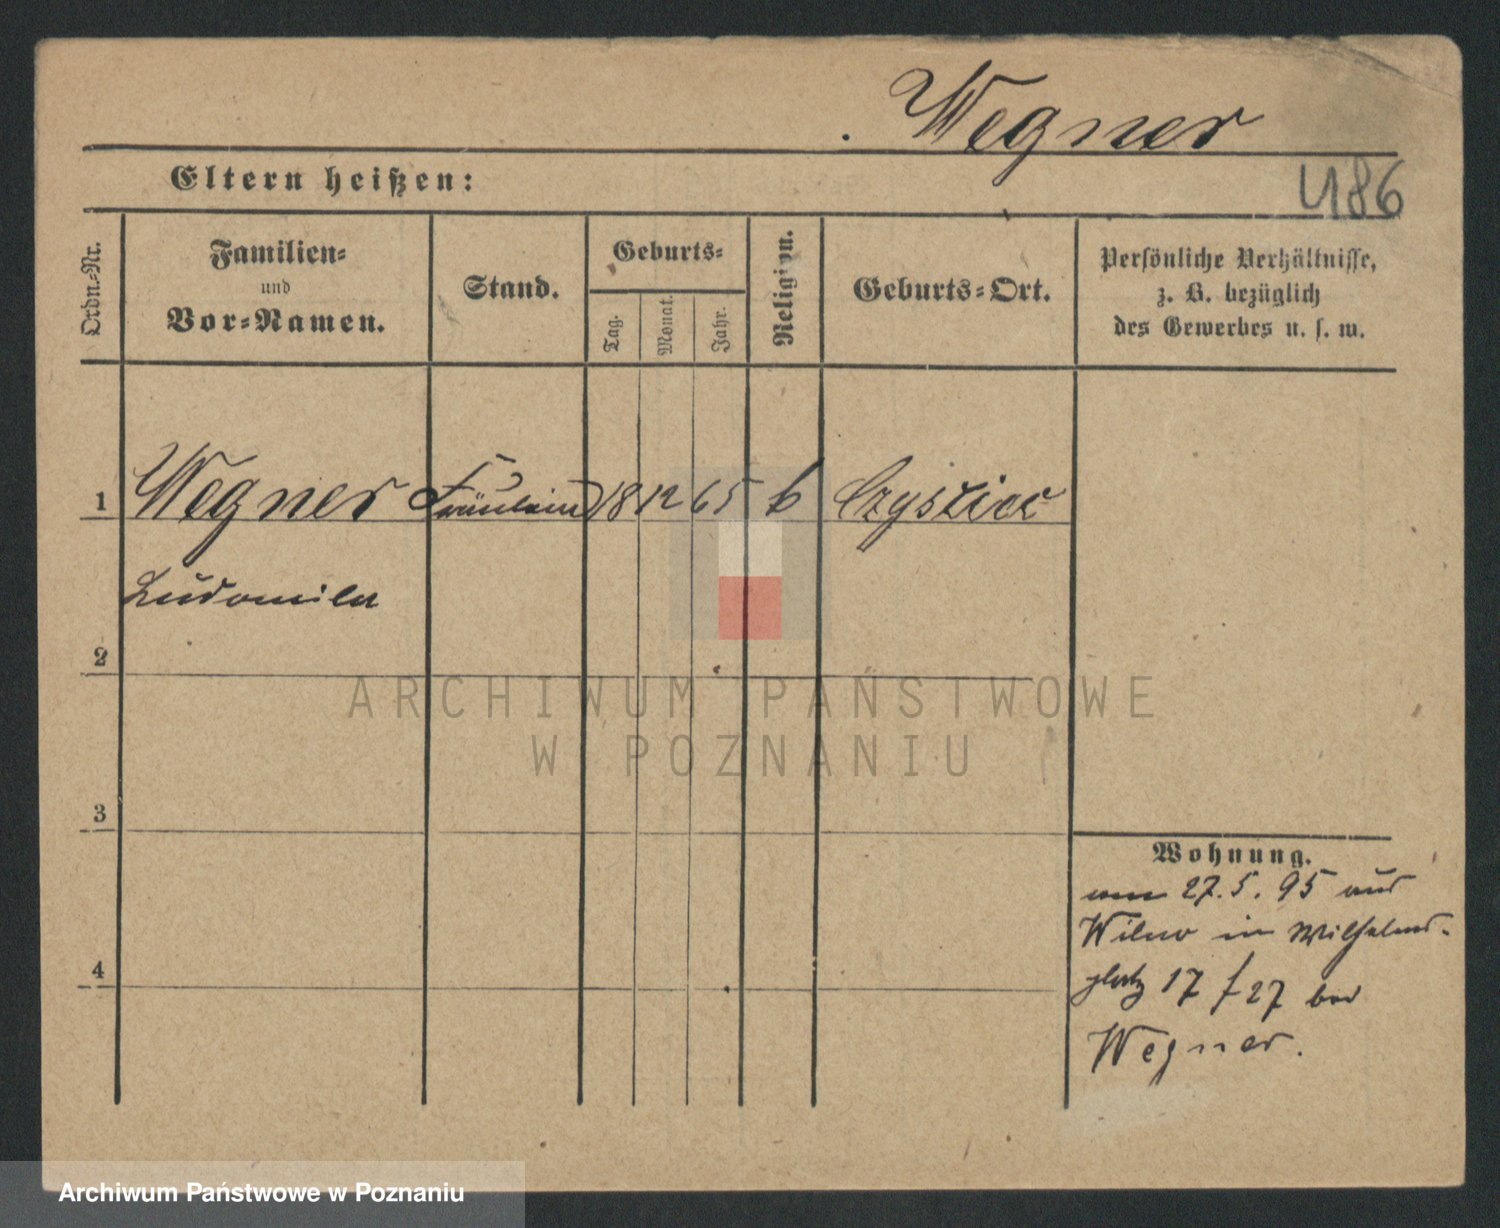 Wegner
486
Eltern heißen:
Ordn.-Nr.
Familien-
und
Vor-Namen.
Stand.
Geburts-
Tag.
Monat.
Jahr.
Religion.
Geburts-Ort.
Persönliche Verhältnisse,
z. B. bezüglich
des Gewerbes u. s. w.
1 Wegner Fräulein 18 12 65
Ludomila
2
3
4
Wohnung.
27.5.95 aus
Wilno in Wilhelms-
platz 17 f 27 bei
Wegner.
ARCHIWUM PAŃSTWOWE
W POZNANIU
Archiwum Państwowe w Poznaniu